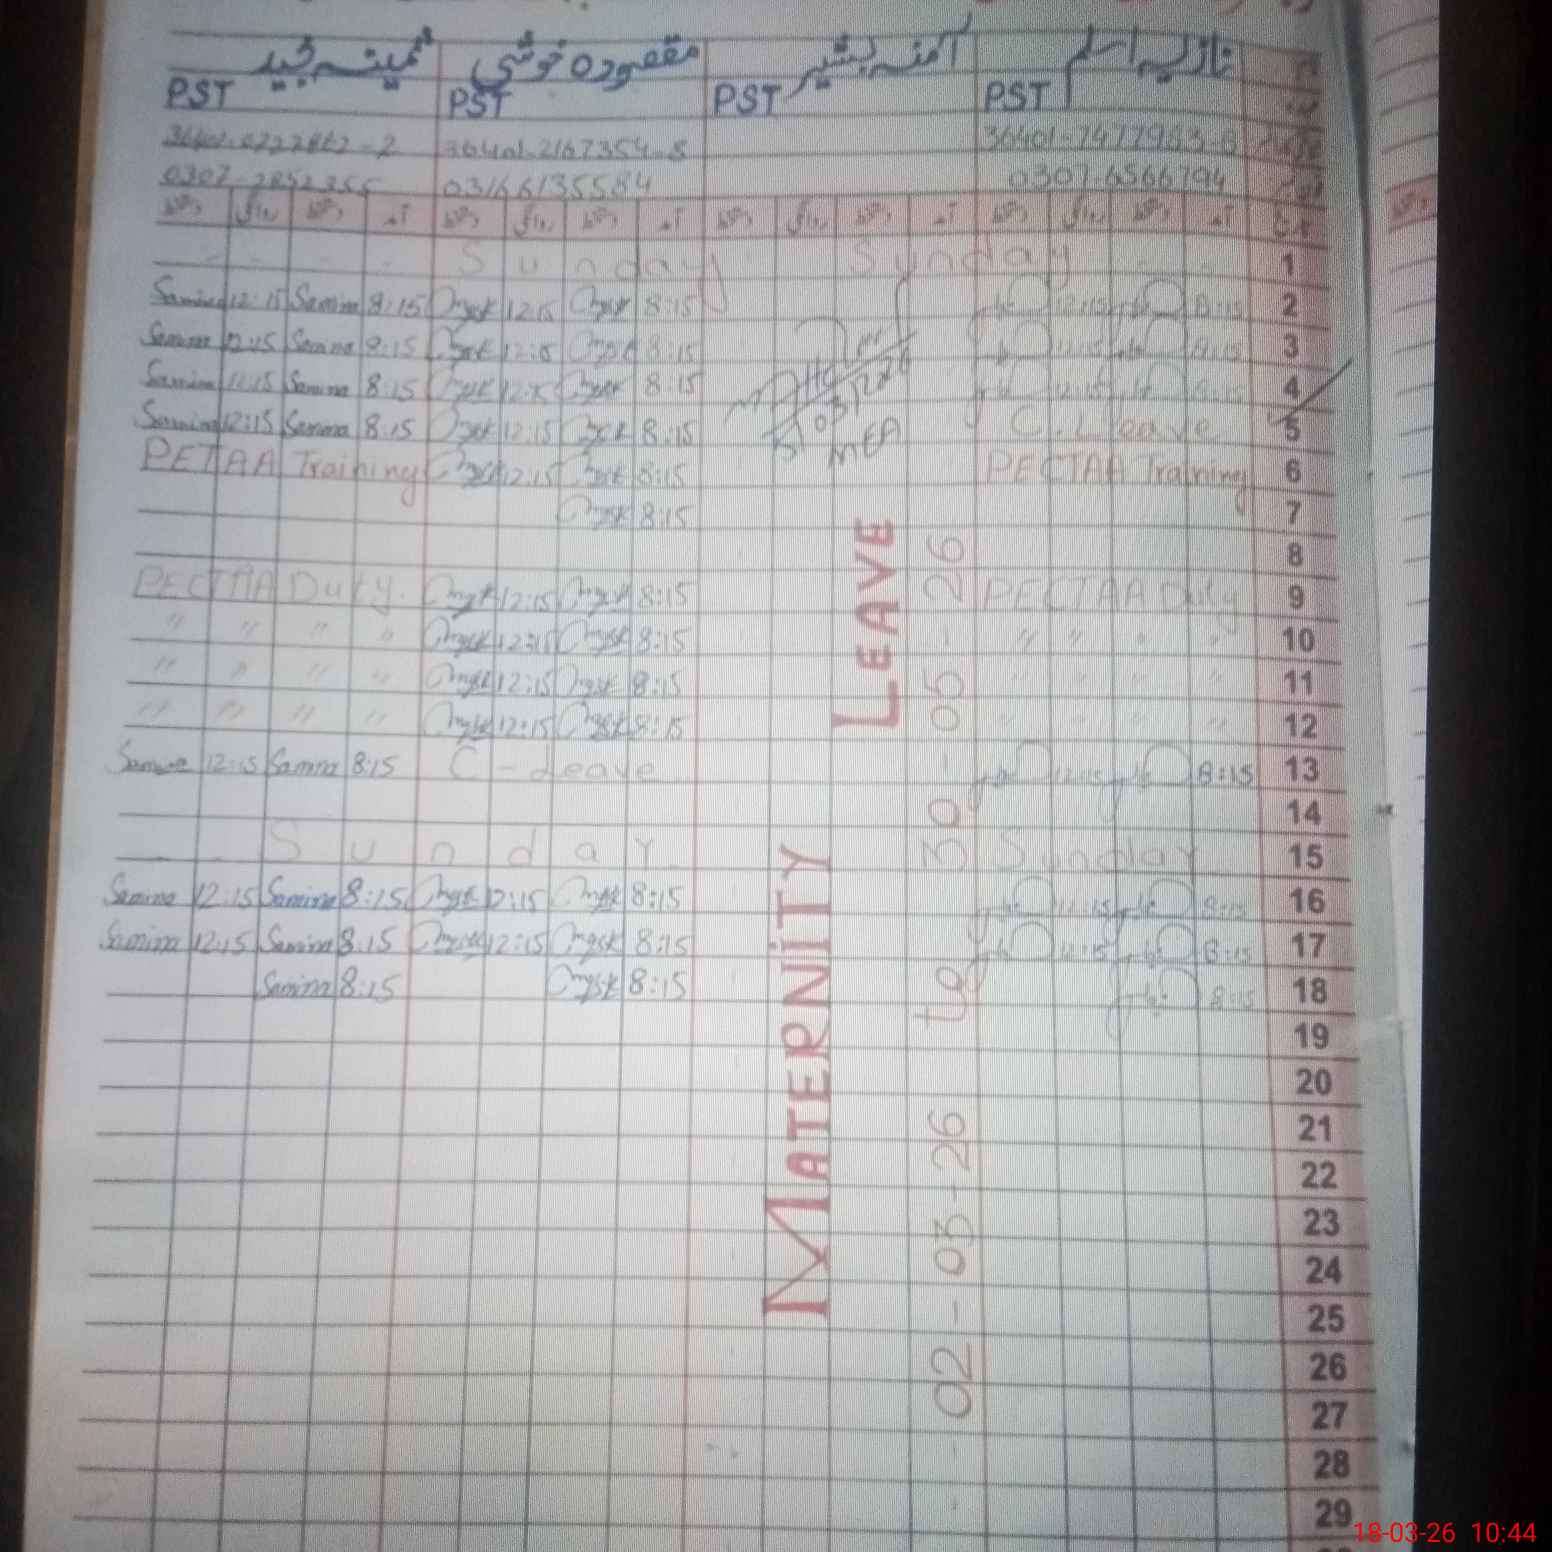 نازیہ اسلم آمنہ بشیر مقصودہ خوشی ثمینہ مجید
PST PST PST PST
36401-7477963-8 36401-2167354-8
0307-6566794 03166135584
آمد دستخط روانگی دستخط آمد دستخط روانگی دستخط آمد دستخط روانگی دستخط آمد دستخط روانگی دستخط
Sunday Sunday 1
Samina 12:15 Samina 8:15 12:15 8:15 12:15 8:15 2
Samina 12:15 Samina 8:15 8:15 8:15 3
Samina Samina 8:15 8:15 8:15 4
Samina 12:15 Samina 8:15 12:15 8:15 C. Leave 5
PETAA Training 12:15 8:15 PECTAA Training 6
8:15 7
8
PECTAA Duty. 12:15 8:15 PECTAA Duty 9
" " " " 12:15 8:15 " " " " 10
" " " " 12:15 8:15 " " " " 11
" " " " 12:15 8:15 " " " " 12
Samina 12:15 Samina 8:15 C-Leave 12:15 8:15 13
14
Sunday Sunday 15
Samina 12:15 Samina 8:15 12:15 8:15 12:15 8:15 16
Samina 12:15 Samina 8:15 12:15 8:15 12:15 8:15 17
Samina 8:15 8:15 8:15 18
19
20
21
22
23
24
25
26
27
28
29
MATERNITY LEAVE
02-03-26 to 30-05-26
18-03-26 10:44